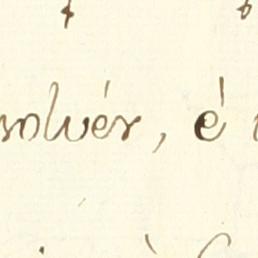 solvér, é